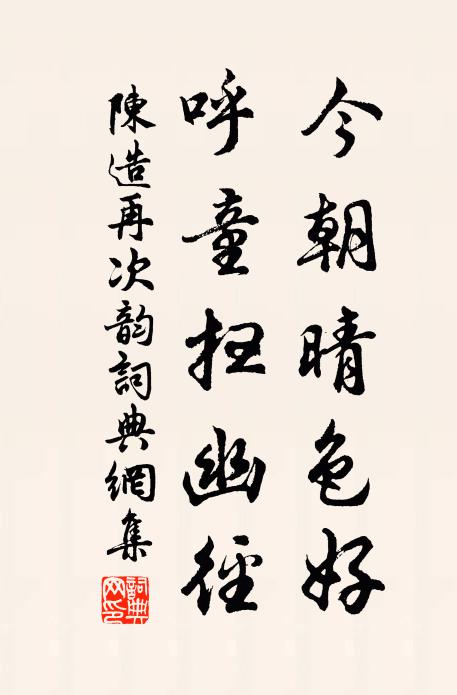 今朝晴色好
呼童扫幽径
陳造再次韵詞典網集
詞典网印